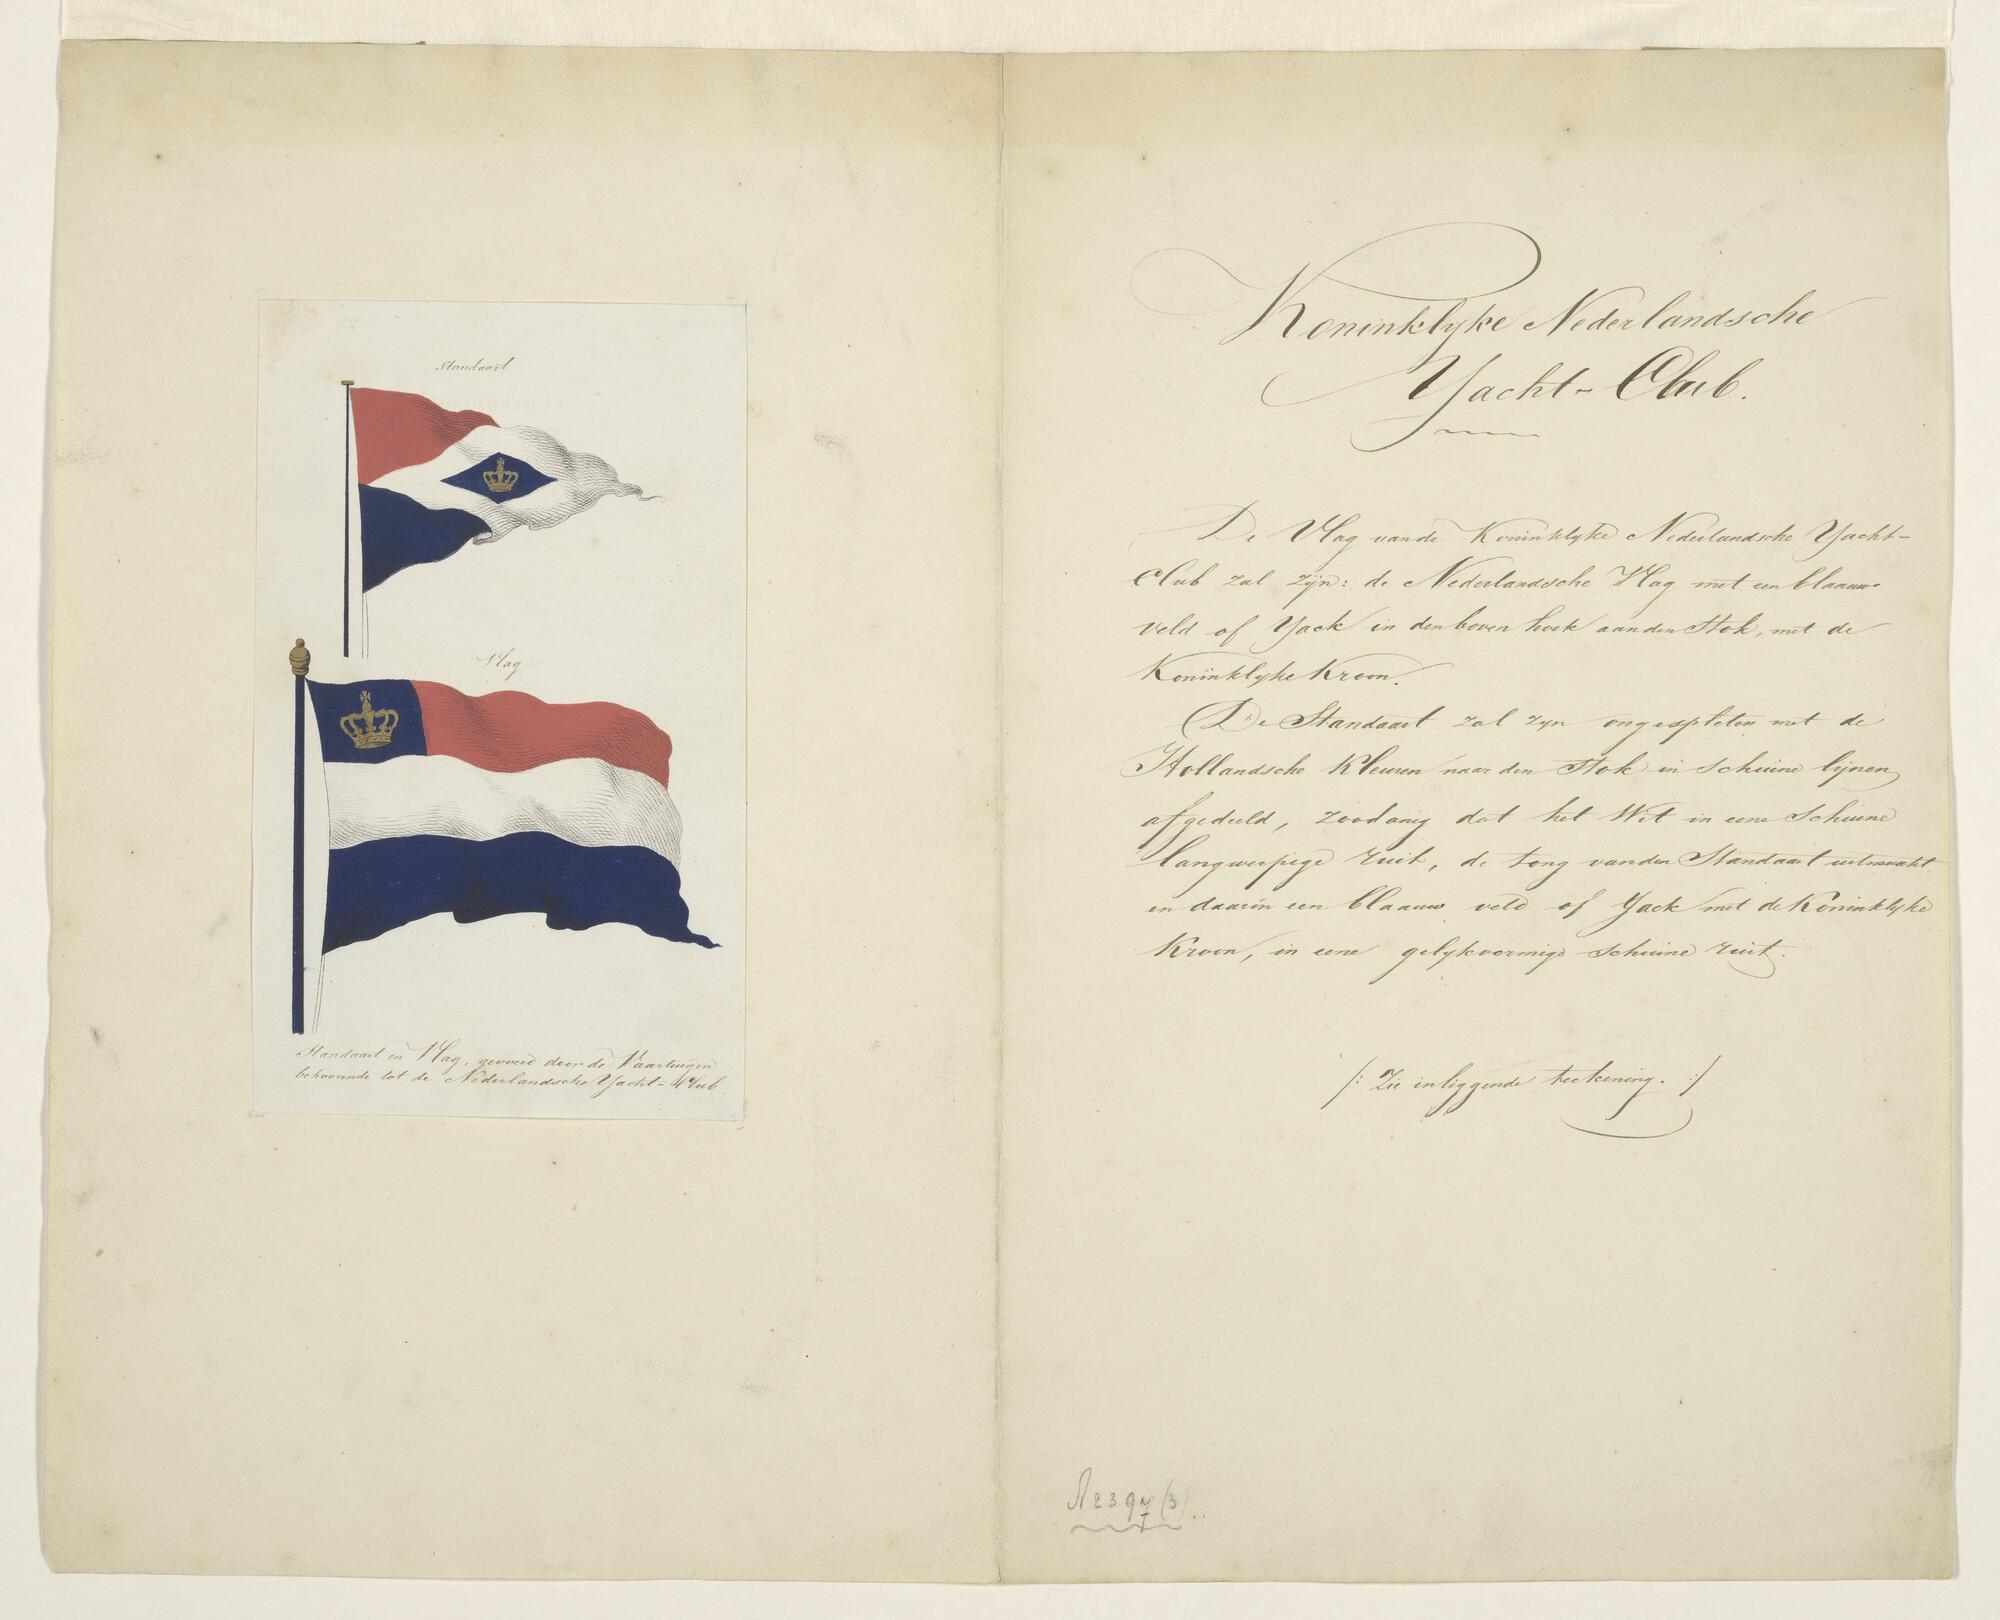 Standaart
Vlag
Standaart en Vlag, gevoerd door de Vaartuigen
behoorende tot de Nederlandsche Yacht-Club.
Koninklyke Nederlandsche
Yacht-Club.
De Vlag van de Koninklyke Nederlandsche Yacht-
Club zal zijn: de Nederlandsche Vlag met een blaauw
veld of Jack in den boven hoek aan den Stok, met de
Koninklyke Kroon.
De Standaart zal zyn ongespleten met de
Hollandsche Kleuren naar den Stok in schuine lijnen
afgedeeld, zoodanig dat het Wit in eene schuine
langwerpige ruit, de tong van den Standaart uitmaakt
en daarin een blaauw veld of Jack met de Koninklyke
Kroon, in eene gelykvormige schuine ruit.
/: Zie inliggende teekening. :/
A 2397 (3)